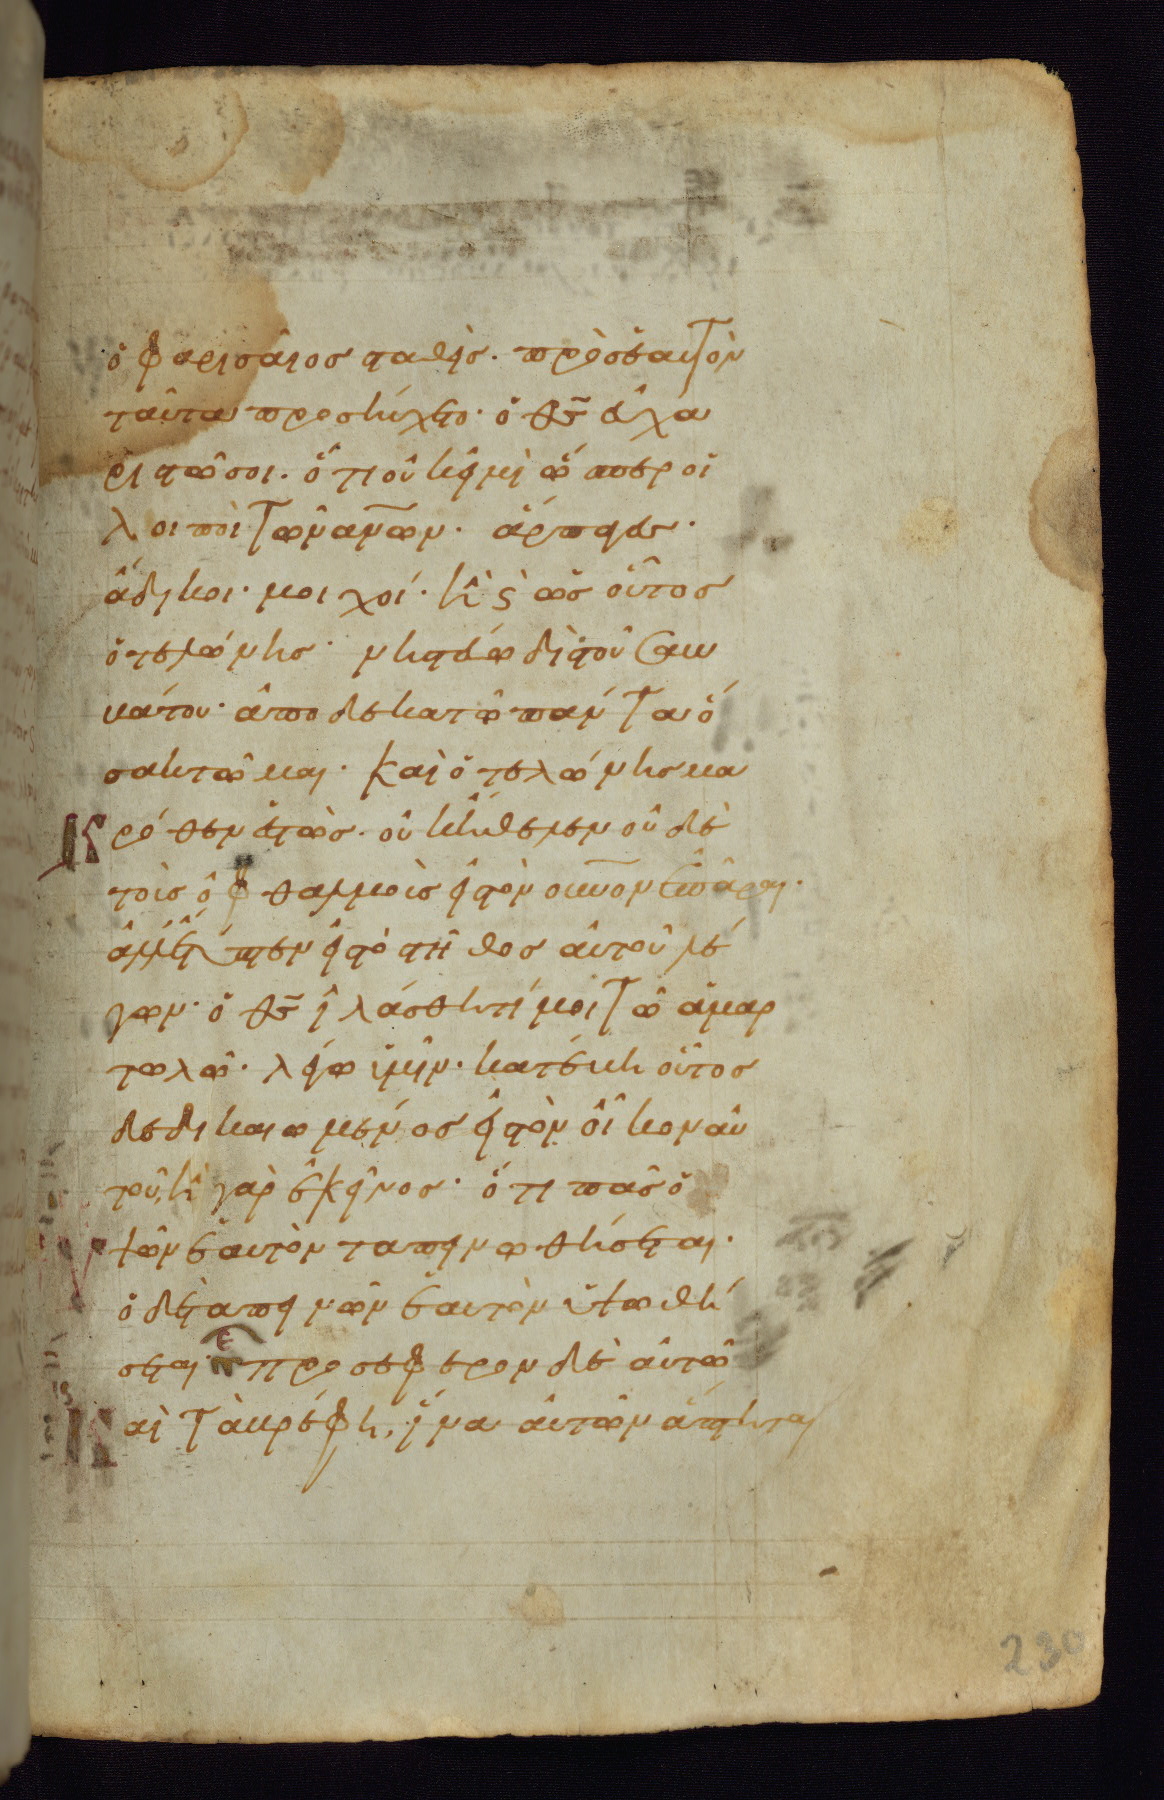 ὁ φαρισαῖος σταθεὶς. πρὸσ ἑαυτὸν
ταῦτα προσηύχετο· ὁ θσ̄ εὐχα
ριστῶ σοι. ὅτι οὐκ εἰμὶ ὥσπερ οἱ
λοιποὶ τῶν ἀν̄ων. ἅρπαγες.
ἄδικοι. μοιχοί. ἢ ὡς οὗτος
ὁ τελώνης· νηστεύω δὶς τοῦ σαβ
βάτου· ἀποδεκατῶ πάντα ὅ
σα κτῶμαι. καὶ ὁ τελώνης μα
κρόθεν ἑστὼς. οὐκ ἤθελεν οὐδὲ
τοὺς ὀφθαλμοὺς εἰς τὸν οὐν̄ον ἐπᾶραι.
ἀλλ' ἔτυπτεν εἰς τὸ στῆθος αὐτοῦ λέ
γων· ὁ θσ̄ ἱλάσθητί μοι τῶ ἁμαρ
τωλῶ. λέγω ὑμῖν. κατέβη οὗτος
δεδικαιωμένος εἰς τὸν οἶκον αὐ
τοῦ, ἢ γὰρ ἐκεῖνος. ὅτι πᾶς ὁ
ὑψῶν ἑαυτὸν ταπεινωθήσεται.
ὁ δὲ ταπεινῶν ἑαυτὸν ὑψωθή
σεται· προσέφερον δὲ αὐτῶ
καὶ τὰ βρέφη, ἵνα αὐτῶν ἅπτηται
230